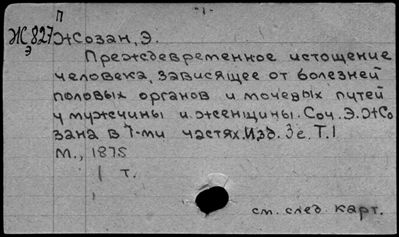 П
-1-
Ж827 Жозан, Э.
Э
Преждевременное истощение
человека, зависящее от болезней
половых органов и мочевых путей
у мужчины и женщины. Соч. Э. Жо
зана в 7-ми частях. Изд. 3е. Т. 1
М., 1875
1 т.
см. след. карт.